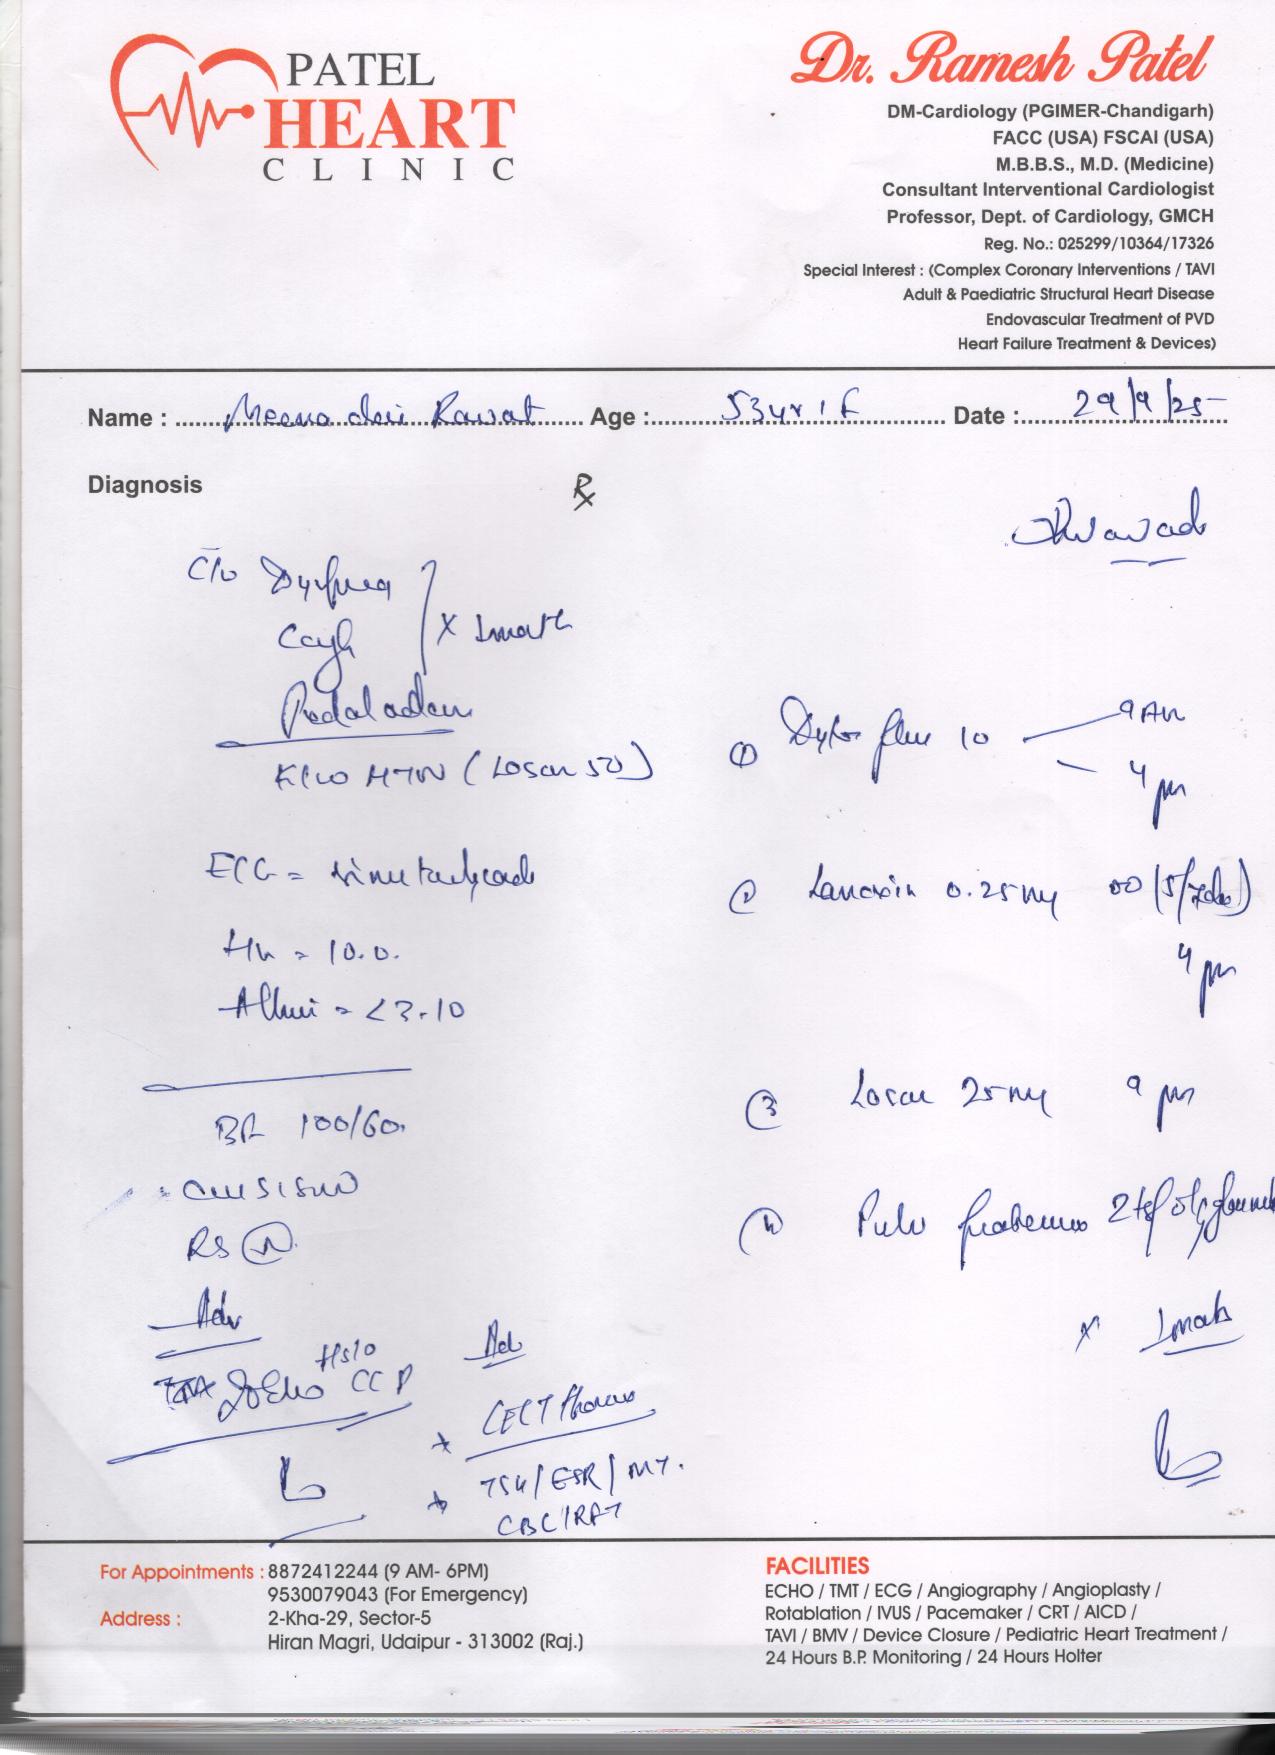 PATEL
HEART
CLINIC
Dr. Ramesh Patel
DM-Cardiology (PGIMER-Chandigarh)
FACC (USA) FSCAI (USA)
M.B.B.S., M.D. (Medicine)
Consultant Interventional Cardiologist
Professor, Dept. of Cardiology, GMCH
Reg. No.: 025299/10364/17326
Special Interest : (Complex Coronary Interventions / TAVI
Adult & Paediatric Structural Heart Disease
Endovascular Treatment of PVD
Heart Failure Treatment & Devices)
Name : Meena devi Rawat Age : 53yr / F Date : 29/9/25
Diagnosis
Rx
C/o Dyspnea
Cough } x 1month
Pedal edema
K/c/o HTN (Losar 50)
ECG = sinus tachycardia
Hb = 10.0.
Albumi = <3.10
BP 100/60.
CVS S1S2
RS (N)
Adv
2D Echo
① Dytor plus 10 9 AM
4 pm
② Lanoxin 0.25mg OD (5/7 days)
4 pm
③ Losar 25mg 9 pm
④ Pulv 2 tsf
x 1month
Adv
* CECT Thorax
* TSH / ESR / MT.
CBC / RFT
For Appointments : 8872412244 (9 AM- 6PM)
9530079043 (For Emergency)
Address : 2-Kha-29, Sector-5
Hiran Magri, Udaipur - 313002 (Raj.)
FACILITIES
ECHO / TMT / ECG / Angiography / Angioplasty /
Rotablation / IVUS / Pacemaker / CRT / AICD /
TAVI / BMV / Device Closure / Pediatric Heart Treatment /
24 Hours B.P. Monitoring / 24 Hours Holter